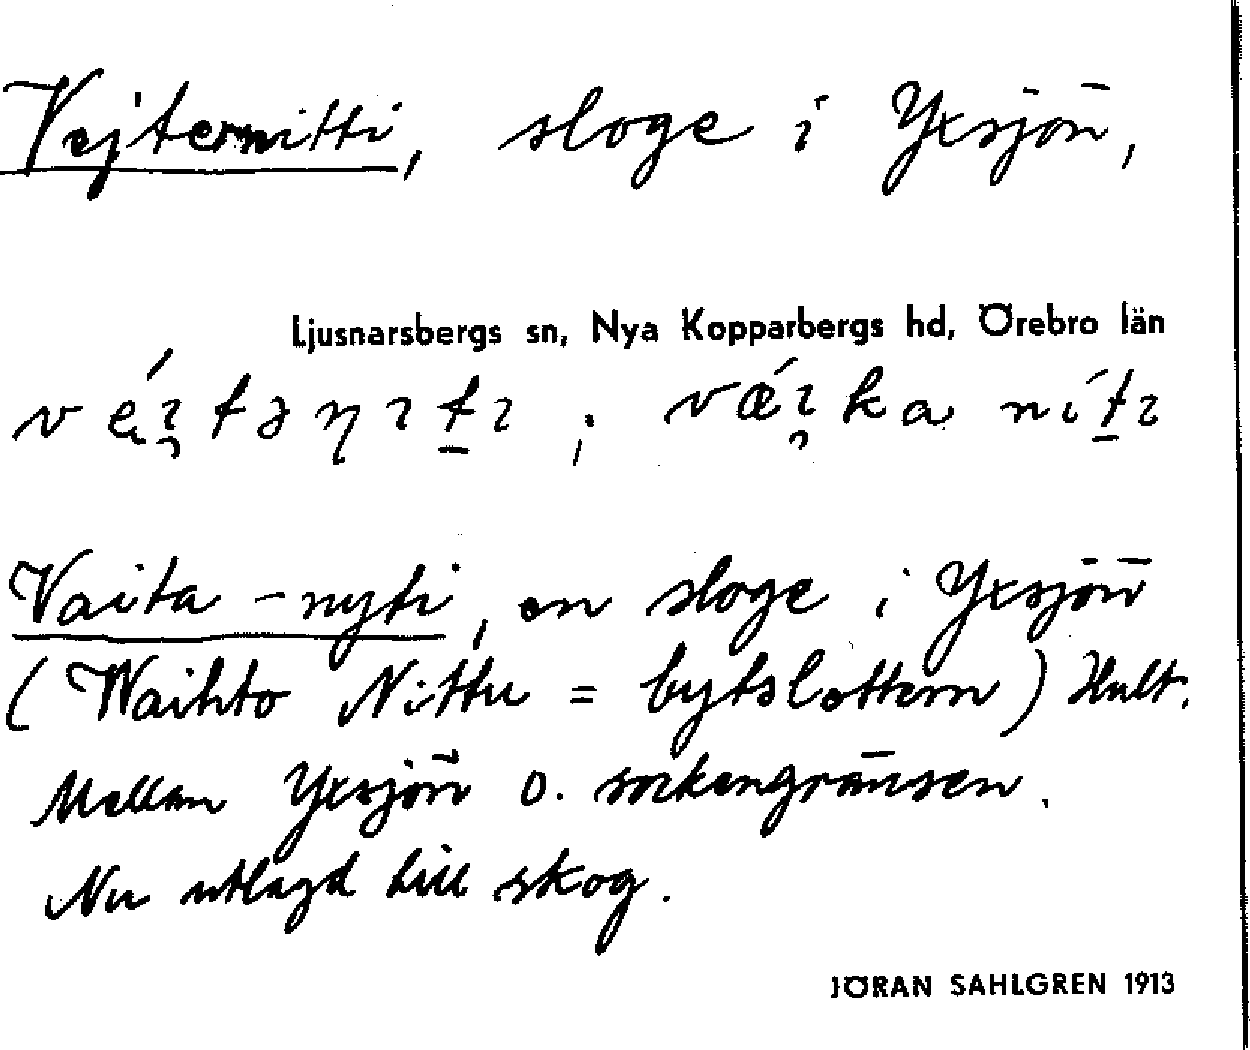 Vejternitti, sloge i Yxsjön,
Ljusnarsbergs sn, Nya Kopparbergs hd, Örebro län
Vaita-nyti, en sloge i Yxsjön
(Waihto Nittu = bytslottern) Hult.
Mellan Yxsjön o. sockengränsen.
Nu utlagd till skog.
JÖRAN SAHLGREN 1913